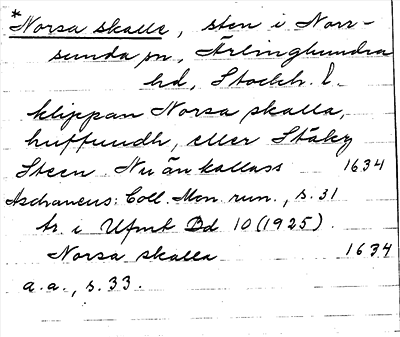 *Norsa skalle, sten i Norr-
sunda sn., Ärlinghundra
hd, Stockh. l.
klippan Norsa skalla,
huffuudh, eller Stäky
Steen Nu än kallass 1634
Aschaneus: Coll. Mon. run., s. 31
tr. i Ufmt Bd 10 (1925).
Norsa skalla 1634
a.a., s. 33.